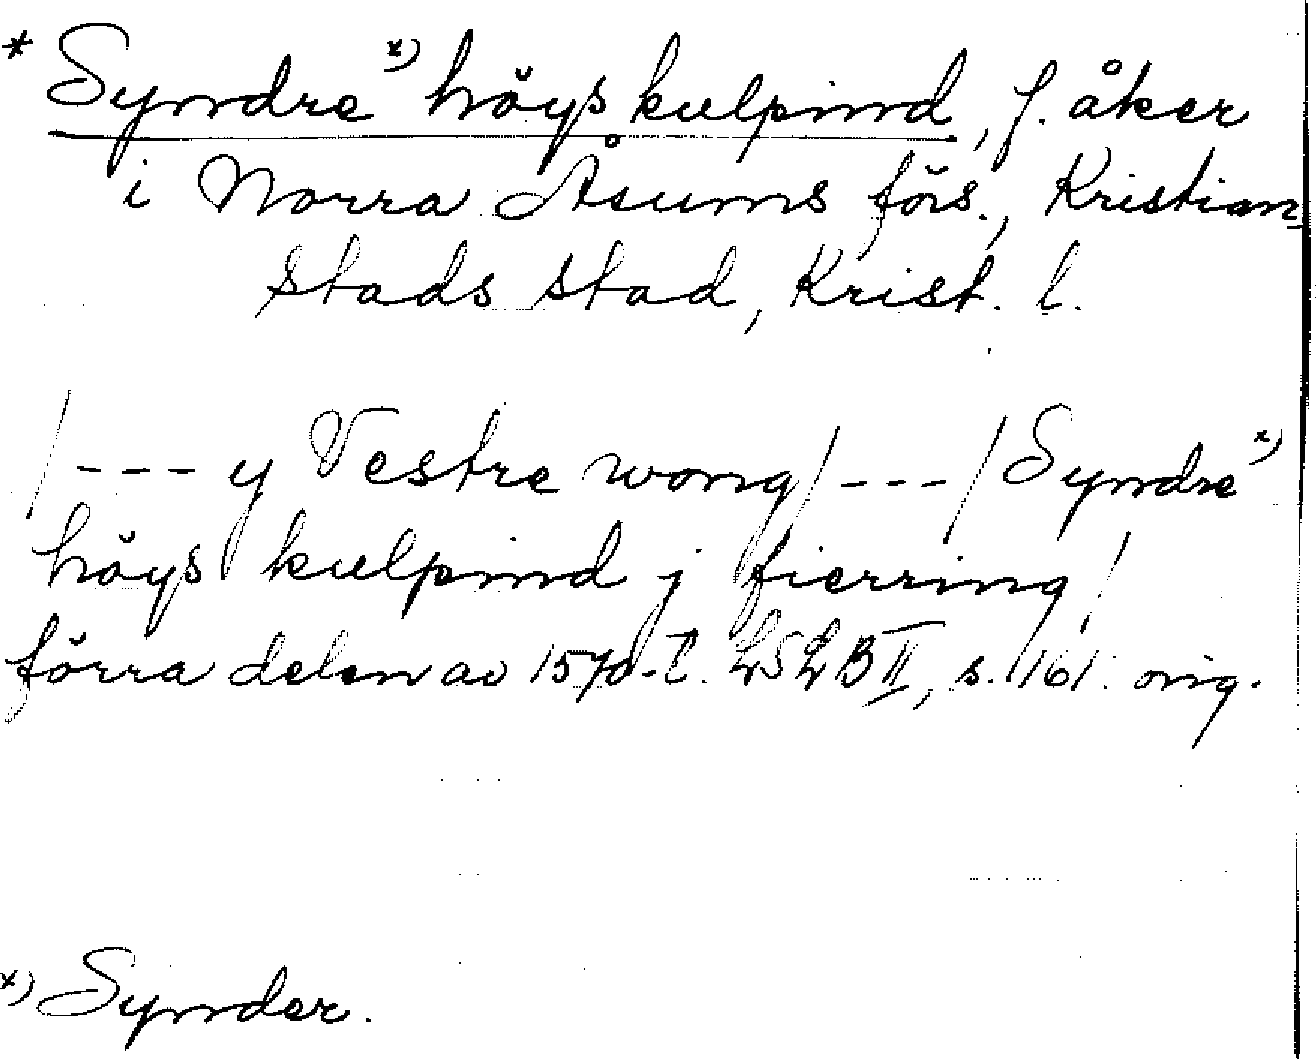 * Syndre x) höys kulpind, f. åker
i Norra Åsums förs., Kristian
stads stad, Krist. l.
/--- y Vestre wong/---/Syndre x)
höys kulpind j fierring/
förra delen av 1570-t. LSLB II, s. 161. orig.
x) Synder.